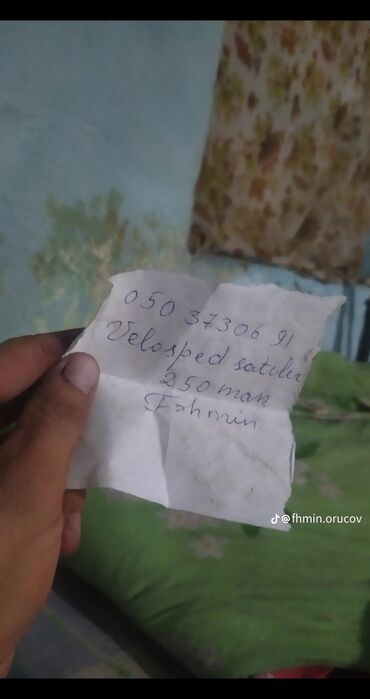 050 37306 91
Velosped satılır
250 man
Fəhmin
@fhmin.orucov